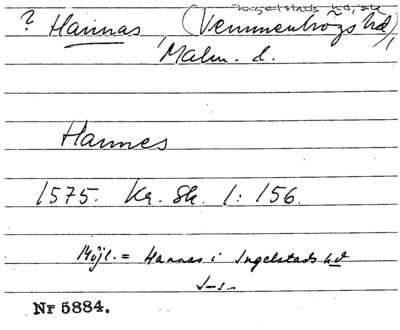 Ingelstads hd, sk
? Hannas, (Vemmenhögs hd),
Malm. l.
Hannes
1575. Kr. Sk. 1: 156.
Möjl. = Hannas i Ingelstads hd
J-s-
Nr 5884.